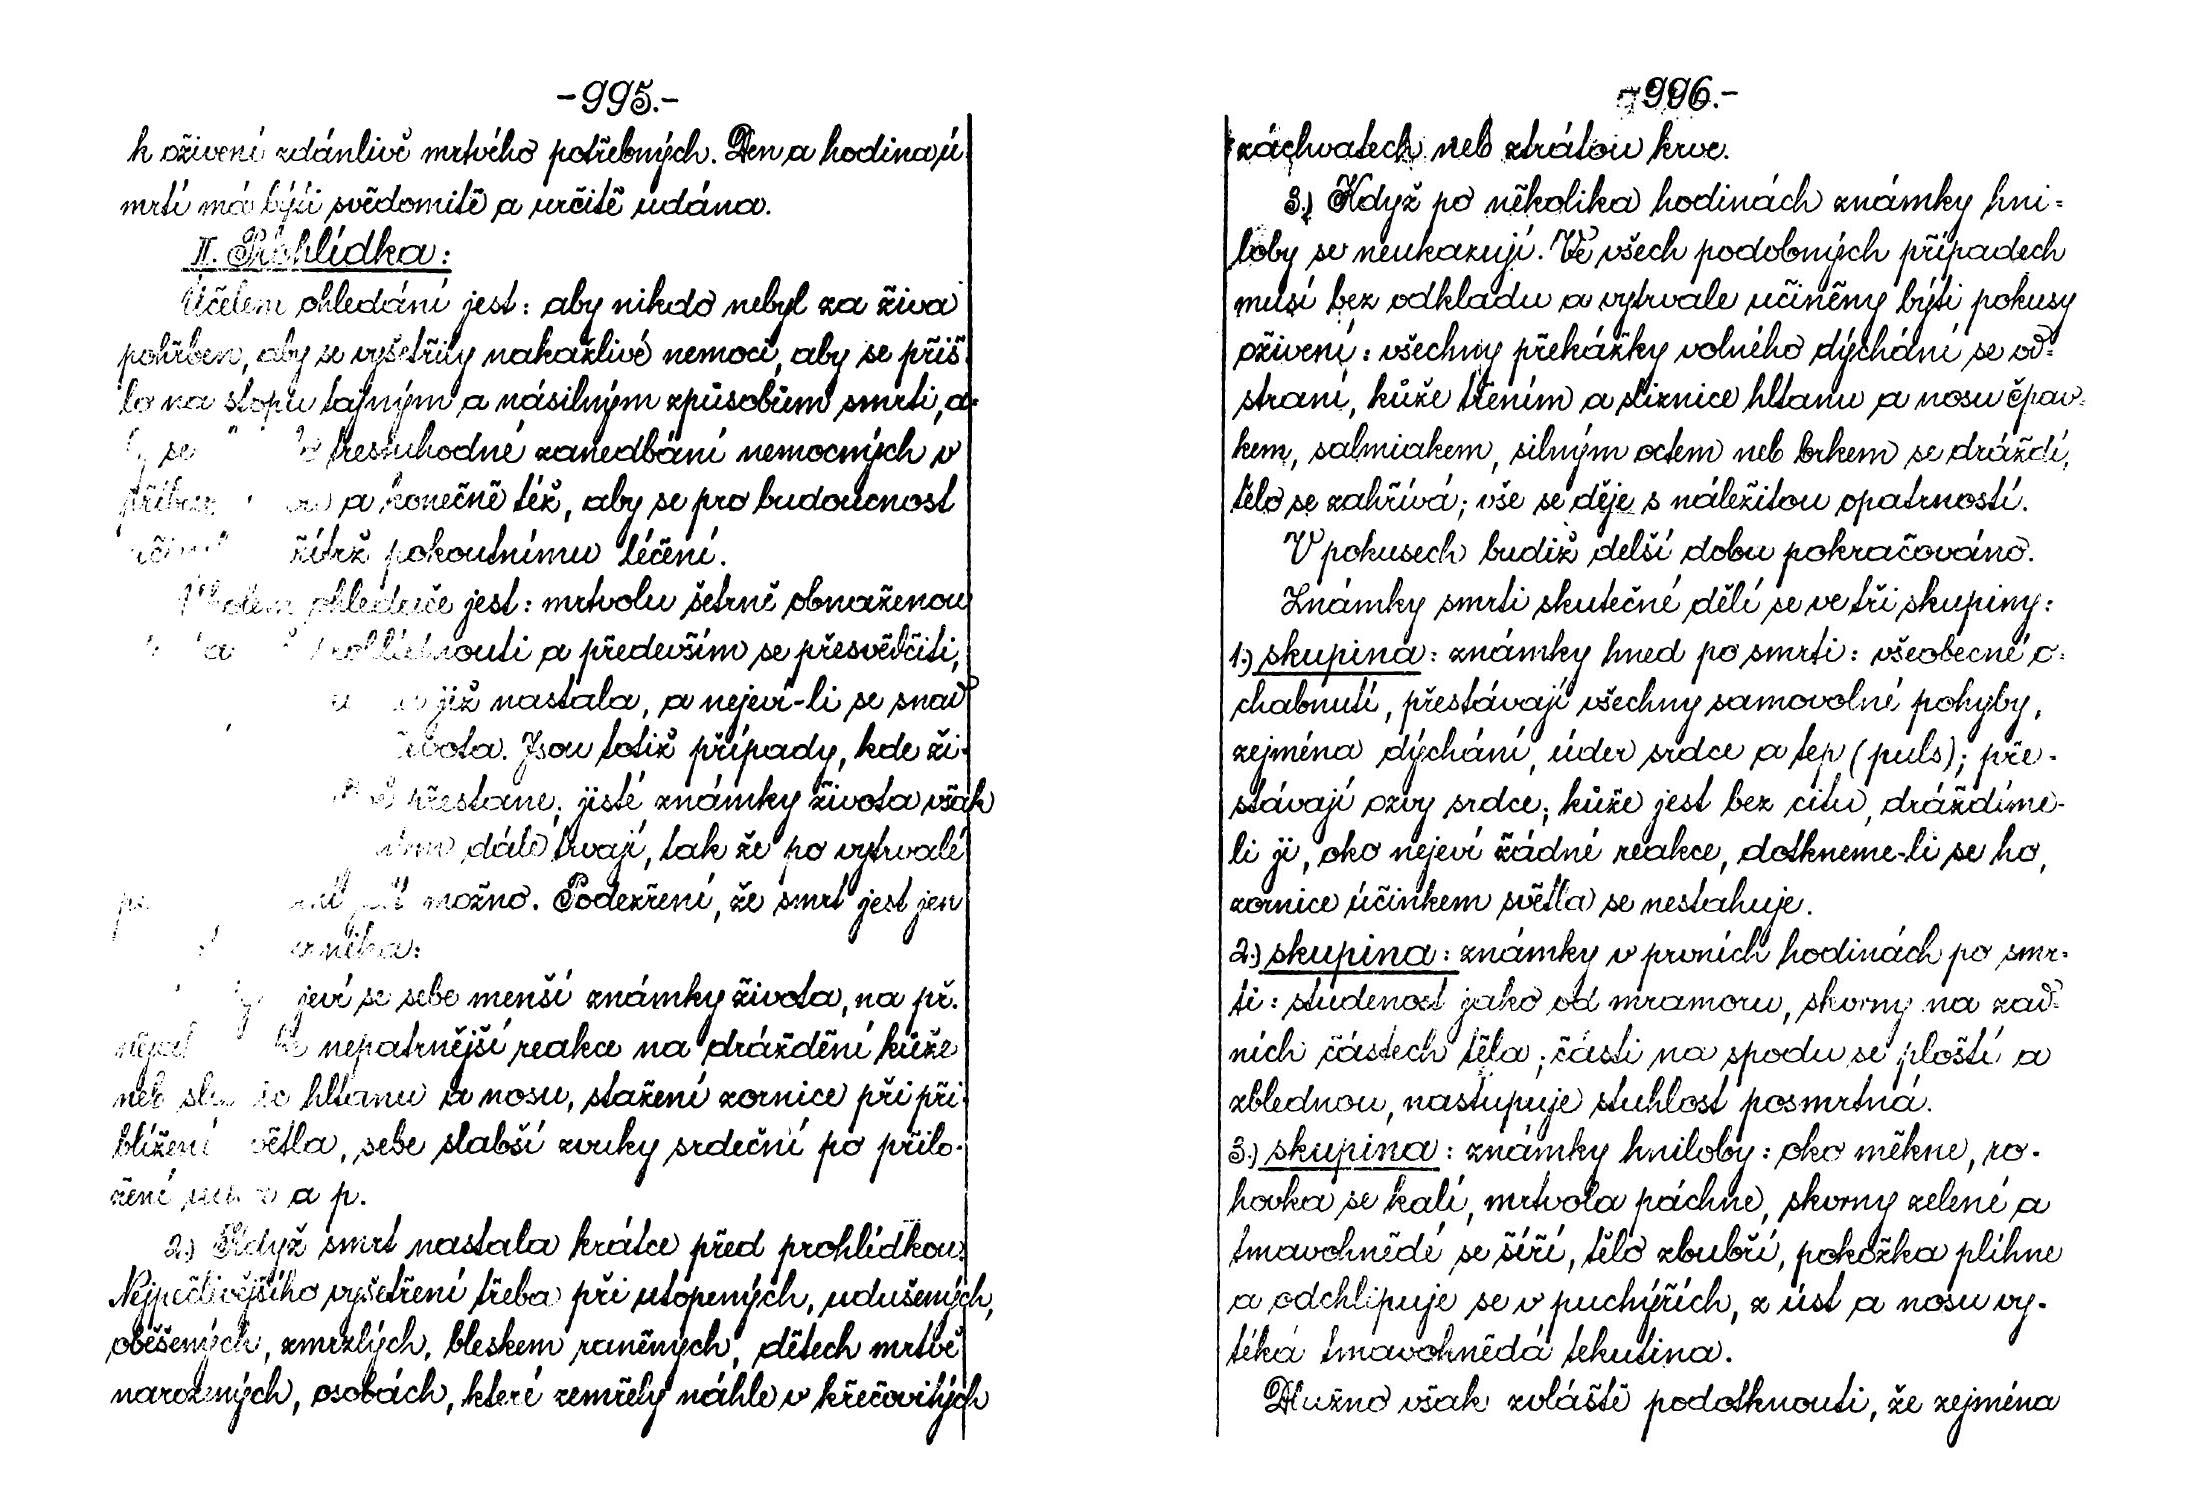 -995.-
k oživení zdánlivě mrtvého potřebných. Den a hodina ú
mrtí má býti svědomitě a určitě udána.
II. Prohlídka:
Účelem ohledání jest: aby nikdo nebyl za živa
pohřben, aby se vyšetřily nakažlivé nemoci, aby se přiš
lo na stopu tajným a násilným způsobům smrti, a-
se trestuhodné zanedbání nemocných v
a konečně též, aby se pro budoucnost
pokoutnímu léčení.
ohledače jest: mrtvolu šetrně obnaženou
a především se přesvědčiti,
již nastala, a nejeví-li se snad
života. Jsou totiž případy, kde ži-
přestane; jisté známky života však
dále trvají, tak že po vytrvalé
možno. Podezření, že smrt jest jen
jeví se sebe menší známky života, na př.
nepatrnější reakce na dráždění kůže
neb hltanu a nosu, stažení zornice při při-
blížení světla, sebe slabší zvuky srdeční po přilo-
žení a p.
2.) Když smrt nastala krátce před prohlídkou.
Nejpečlivějšího vyšetření třeba při utopených, udušených,
oběšených, zmrzlých, bleskem raněných, dětech mrtvě
narozených, osobách, které zemřely náhle v křečovitých
-996.-
záchvatech neb ztrátou krve.
3.) Když po několika hodinách známky hni-
loby se neukazují. Ve všech podobných případech
musí bez odkladu a vytrvale učiněny býti pokusy
oživení: všechny překážky volného dýchání se od-
straní, kůže třením a sliznice hltanu a nosu čpav-
kem, salmiakem, silným octem neb brkem se dráždí,
tělo se zahřívá; vše se děje s náležitou opatrností.
V pokusech budiž delší dobu pokračováno.
Známky smrti skutečné dělí se ve tři skupiny:
1.) skupina: známky hned po smrti: všeobecné o-
chabnutí, přestávají všechny samovolné pohyby,
zejména dýchání, úder srdce a tep (puls); pře-
stávají ozvy srdce; kůže jest bez citu, dráždíme-
li ji, oko nejeví žádné reakce, dotkneme-li se ho,
zornice účinkem světla se nestahuje.
2.) skupina: známky v prvních hodinách po smr-
ti: studenost jako od mramoru, skvrny na zad-
ních částech těla; části na spodu se ploští a
zblednou, nastupuje stuhlost posmrtná.
3.) skupina: známky hniloby: oko měkne, ro-
hovka se kalí, mrtvola páchne, skvrny zelené a
tmavohnědé se šíří, tělo zbubří, pokožka plihne
a odchlipuje se v puchýřích, z úst a nosu vy-
téká tmavohnědá tekutina.
Dlužno však zvláště podotknouti, že zejména